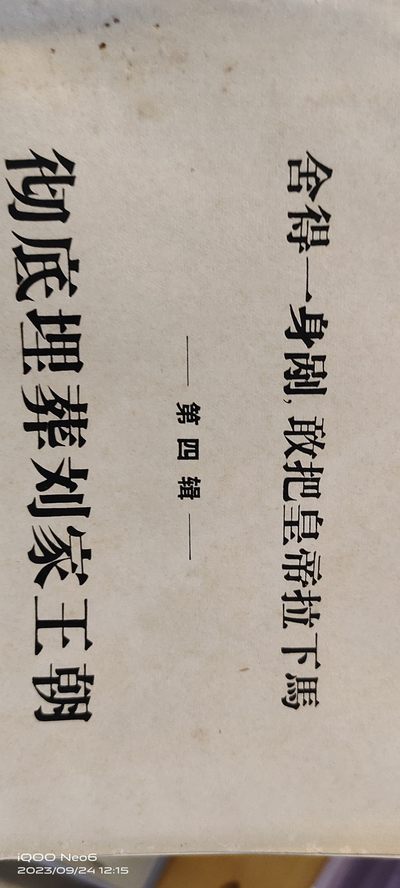 舍得一身剐，敢把皇帝拉下馬
——第四辑——
彻底埋葬刘家王朝
iQOO Neo6
2023/09/24 12:15